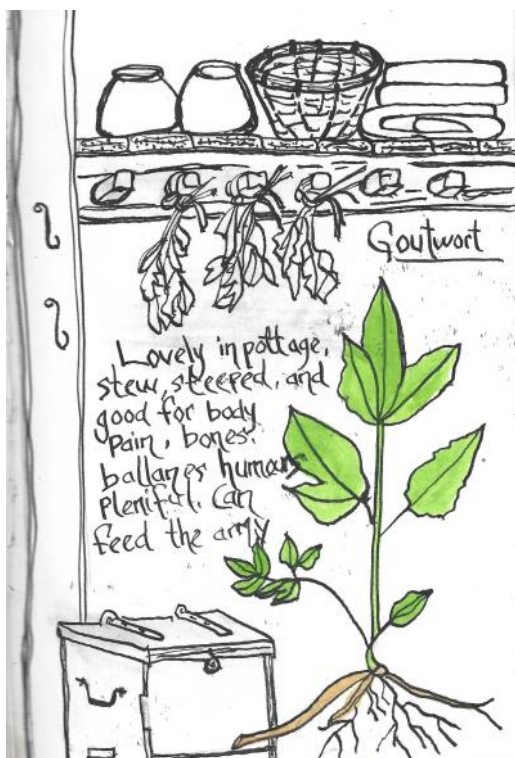 Goutwort
Lovely in pottage,
stew, steeped, and
good for body
pain, bones.
ballanes humours
pleniful. Can
feed the army